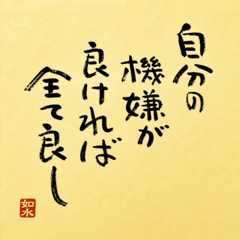 自分の
機嫌が
良ければ
全て良し
如水